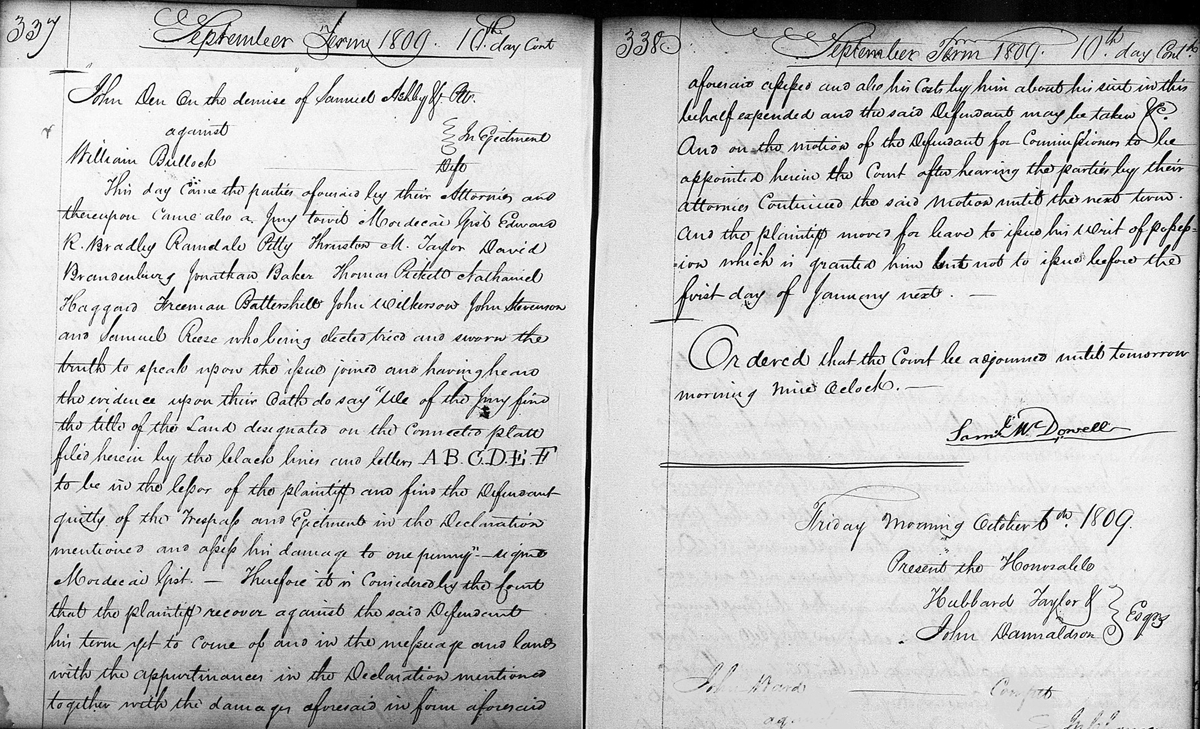 337
September Term 1809. 10th day Cont
John Den On the demise of Samuel Ashby &c Plt.
against
In Ejectment
William Bullock
Deft
This day came the parties aforesaid by their Attornies and
thereupon came also a Jury towit Mordecai Gist Edward
R. Bradley Ramdale Petty Thruston M. Taylor David
Brandenburg Jonathan Baker Thomas Pickett Nathaniel
Haggard Freeman Battershell John Wilkerson John Stevenson
and Samuel Reese who being elected tried and sworn the
truth to speak upon the issue joined and having heard
the evidence upon their Oath do say "We of the Jury find
the title of the Land designated on the Connected platt
filed herein by the black lines and letters A.B.C.D.E.F
to be in the lessor of the plaintiff and find the Defendant
guilty of the Trespass and Ejectment in the Declaration
mentioned and assess his damage to one penny" — signd
Mordecai Gist. — Therefore it is Considered by the Court
that the plaintiff recover against the said Defendant
his term yet to come of and in the messuage and lands
with the appurtinances in the Declaration mentioned
together with the damages aforesaid in form aforesaid
338
September Term 1809. 10th day Contd
aforesaid assessed and also his Costs by him about his suit in this
behalf expended and the said Defendant may be taken &c.
And on the motion of the Defendant for Commissioners to be
appointed herein the Court after hearing the parties by their
attornies Continued the said Motion until the next term.
And the plaintiff moved for leave to issue his Writ of possess=
ion which is granted him but not to issue before the
first day of January next. —
Ordered that the Court be adjourned until tomorrow
morning nine Oclock. —
Saml McDowell
Friday Morning October 6th 1809.
Present the Honorable
Hubbard Taylor &
Esqrs
John Dannaldson
John Ward Complt
ag.